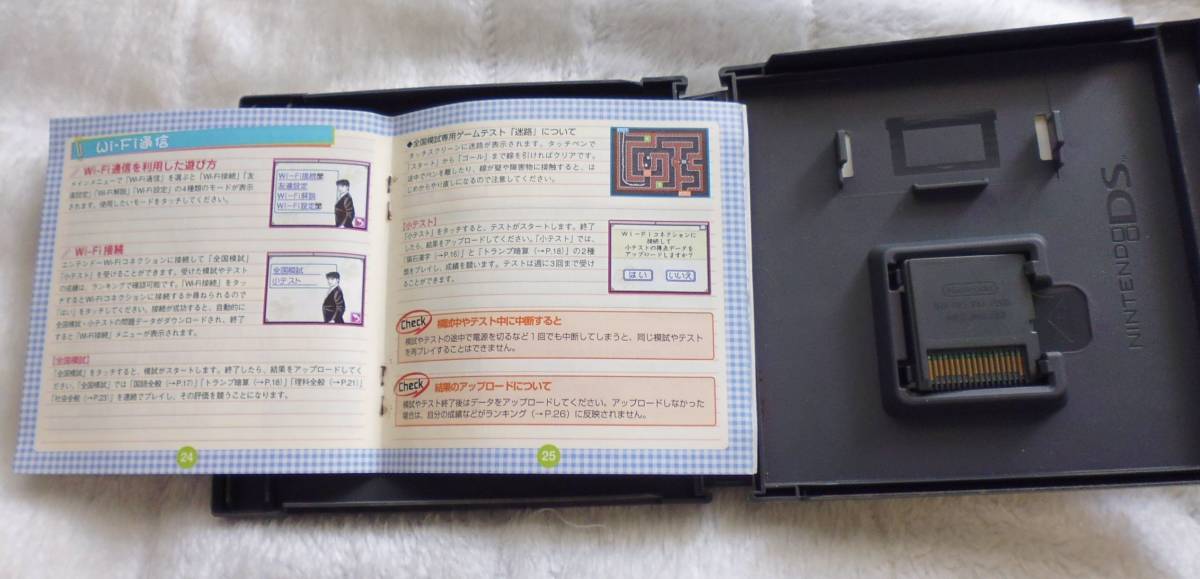 Wi-Fi通信
Wi-Fi通信を利用した遊び方
メインメニューで「Wi-Fi通信」を選ぶと「Wi-Fi接続」「友
達設定」「Wi-Fi解説」「Wi-Fi設定」の4種類のモードが表示
されます。使用したいモードをタッチしてください。
Wi-Fi接続
友達設定
Wi-Fi解説
Wi-Fi設定
Wi-Fi接続
ニンテンドーWi-Fiコネクションに接続して「全国模試」
「小テスト」を受けることができます。受けた模試やテスト
の成績は、ランキングで確認可能です。「Wi-Fi接続」をタッ
チするとWi-Fiコネクションに接続するか尋ねられるので
「はい」をタッチしてください。接続が成功すると、自動的に
全国模試・小テストの問題データがダウンロードされ、終了
すると「Wi-Fi接続」メニューが表示されます。
全国模試
小テスト
[全国模試]
「全国模試」をタッチすると、模試がスタートします。終了したら、結果をアップロードしてく
ださい。「全国模試」では「国語全般(→P.17)」「トランプ暗算(→P.18)」「理科全般(→P.21)」
「社会全般(→P.23)」を連続でプレイし、その評価を競うことになります。
24
◆全国模試専用ゲームテスト「迷路」について
タッチスクリーンに迷路が表示されます。タッチペンで
「スタート」から「ゴール」まで線を引ければクリアです。
途中でペンを離したり、線が壁や障害物に接触すると、は
じめからやり直しになるので注意してください。
[小テスト]
「小テスト」をタッチすると、テストがスタートします。終了
したら、結果をアップロードしてください。「小テスト」では、
「漱石漢字(→P.16)」と「トランプ暗算(→P.18)」の2種
類をプレイし、成績を競います。テストは週に3回まで受け
ることができます。
Wi-Fiコネクションに
接続して
小テストの得点データを
アップロードしますか?
はい いいえ
Check 模試中やテスト中に中断すると
模試やテストの途中で電源を切るなど1回でも中断してしまうと、同じ模試やテスト
を再プレイすることはできません。
Check 結果のアップロードについて
模試やテスト終了後はデータをアップロードしてください。アップロードしなかった
場合は、自分の成績などがランキング(→P.26)に反映されません。
25
Nintendo
NINTENDO DS